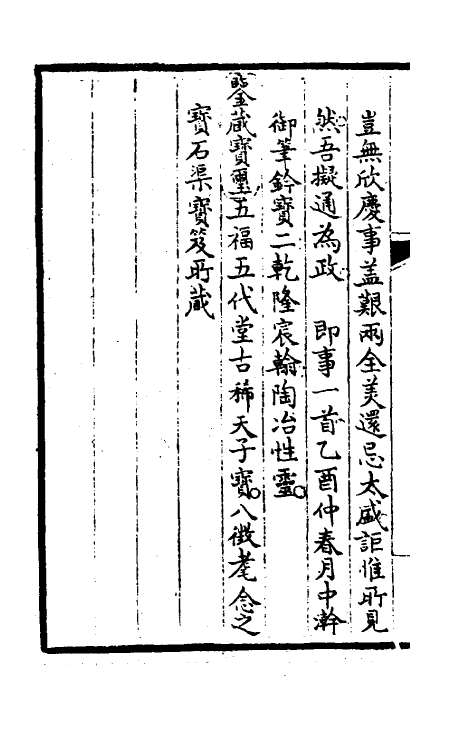 豈無欣慶事盖艱兩全美還忌太盛詎惟所見
然吾擬通為政　即事一首乙酉仲春月中澣
御筆鈐寶二乾隆宸翰陶冶性靈。
鑒藏寶璽五福五代堂古稀天子寶。八徵耄念之
寶石渠寶笈所藏